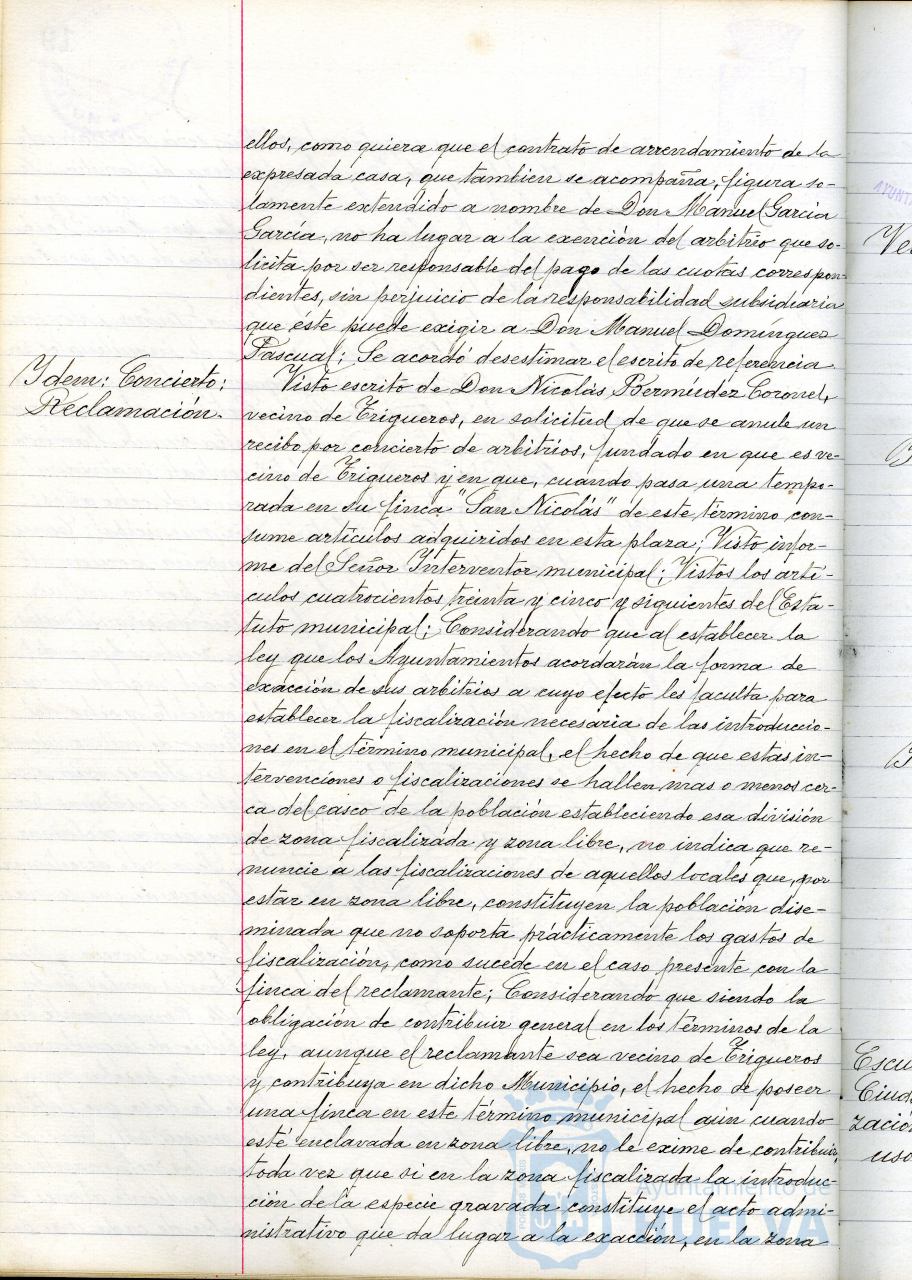 ellos, como quiera que el contrato de arrendamiento de la
expresada casa, que tambien se acompaña, figura so-
lamente extendido a nombre de Don Manuel Garcia
García, no ha lugar a la exención del arbitrio que so-
licita por ser responsable del pago de las cuotas correspon-
dientes, sin perjuicio de la responsabilidad subsidiaria
que éste puede exigir a Don Manuel Dominguez
Pascual; Se acordó desestimar el escrito de referencia
Ydem: Concierto:
Reclamación.
Visto escrito de Don Nicolás Bermúdez Coronel,
vecino de Trigueros, en solicitud de que se anule un
recibo por concierto de arbitrios, fundado en que es ve-
cino de Trigueros y en que, cuando pasa una tempo-
rada en su finca "San Nicolás" de este término con-
sume artículos adquiridos en esta plaza; Visto infor-
me del Señor Interventor municipal; Vistos los artí-
culos cuatrocientos treinta y cinco y siguientes del Esta-
tuto municipal; Considerando que al establecer la
ley que los Ayuntamientos acordarán la forma de
exacción de sus arbitrios a cuyo efecto les faculta para
establecer la fiscalización necesaria de las introduccio-
nes en el término municipal, el hecho de que estas in-
tervenciones o fiscalizaciones se hallen mas o menos cer-
ca del casco de la población estableciendo esa división
de zona fiscalizada y zona libre, no indica que re-
nuncie a las fiscalizaciones de aquellos locales que, por
estar en zona libre, constituyen la población dise-
minada que no soporta prácticamente los gastos de
fiscalización, como sucede en el caso presente con la
finca del reclamante; Considerando que siendo la
obligación de contribuir general en los términos de la
ley, aunque el reclamante sea vecino de Trigueros
y contribuya en dicho Municipio, el hecho de poseer
una finca en este término municipal aún cuando
esté enclavada en zona libre, no le exime de contribuir,
toda vez que si en la zona fiscalizada la introduc-
ción de la especie gravada constituye el acto admi-
nistrativo que da lugar a la exacción, en la zona
Ayuntamiento de
HUELVA
AYUNTA
Ve
Escu
Ciud
zación
uso